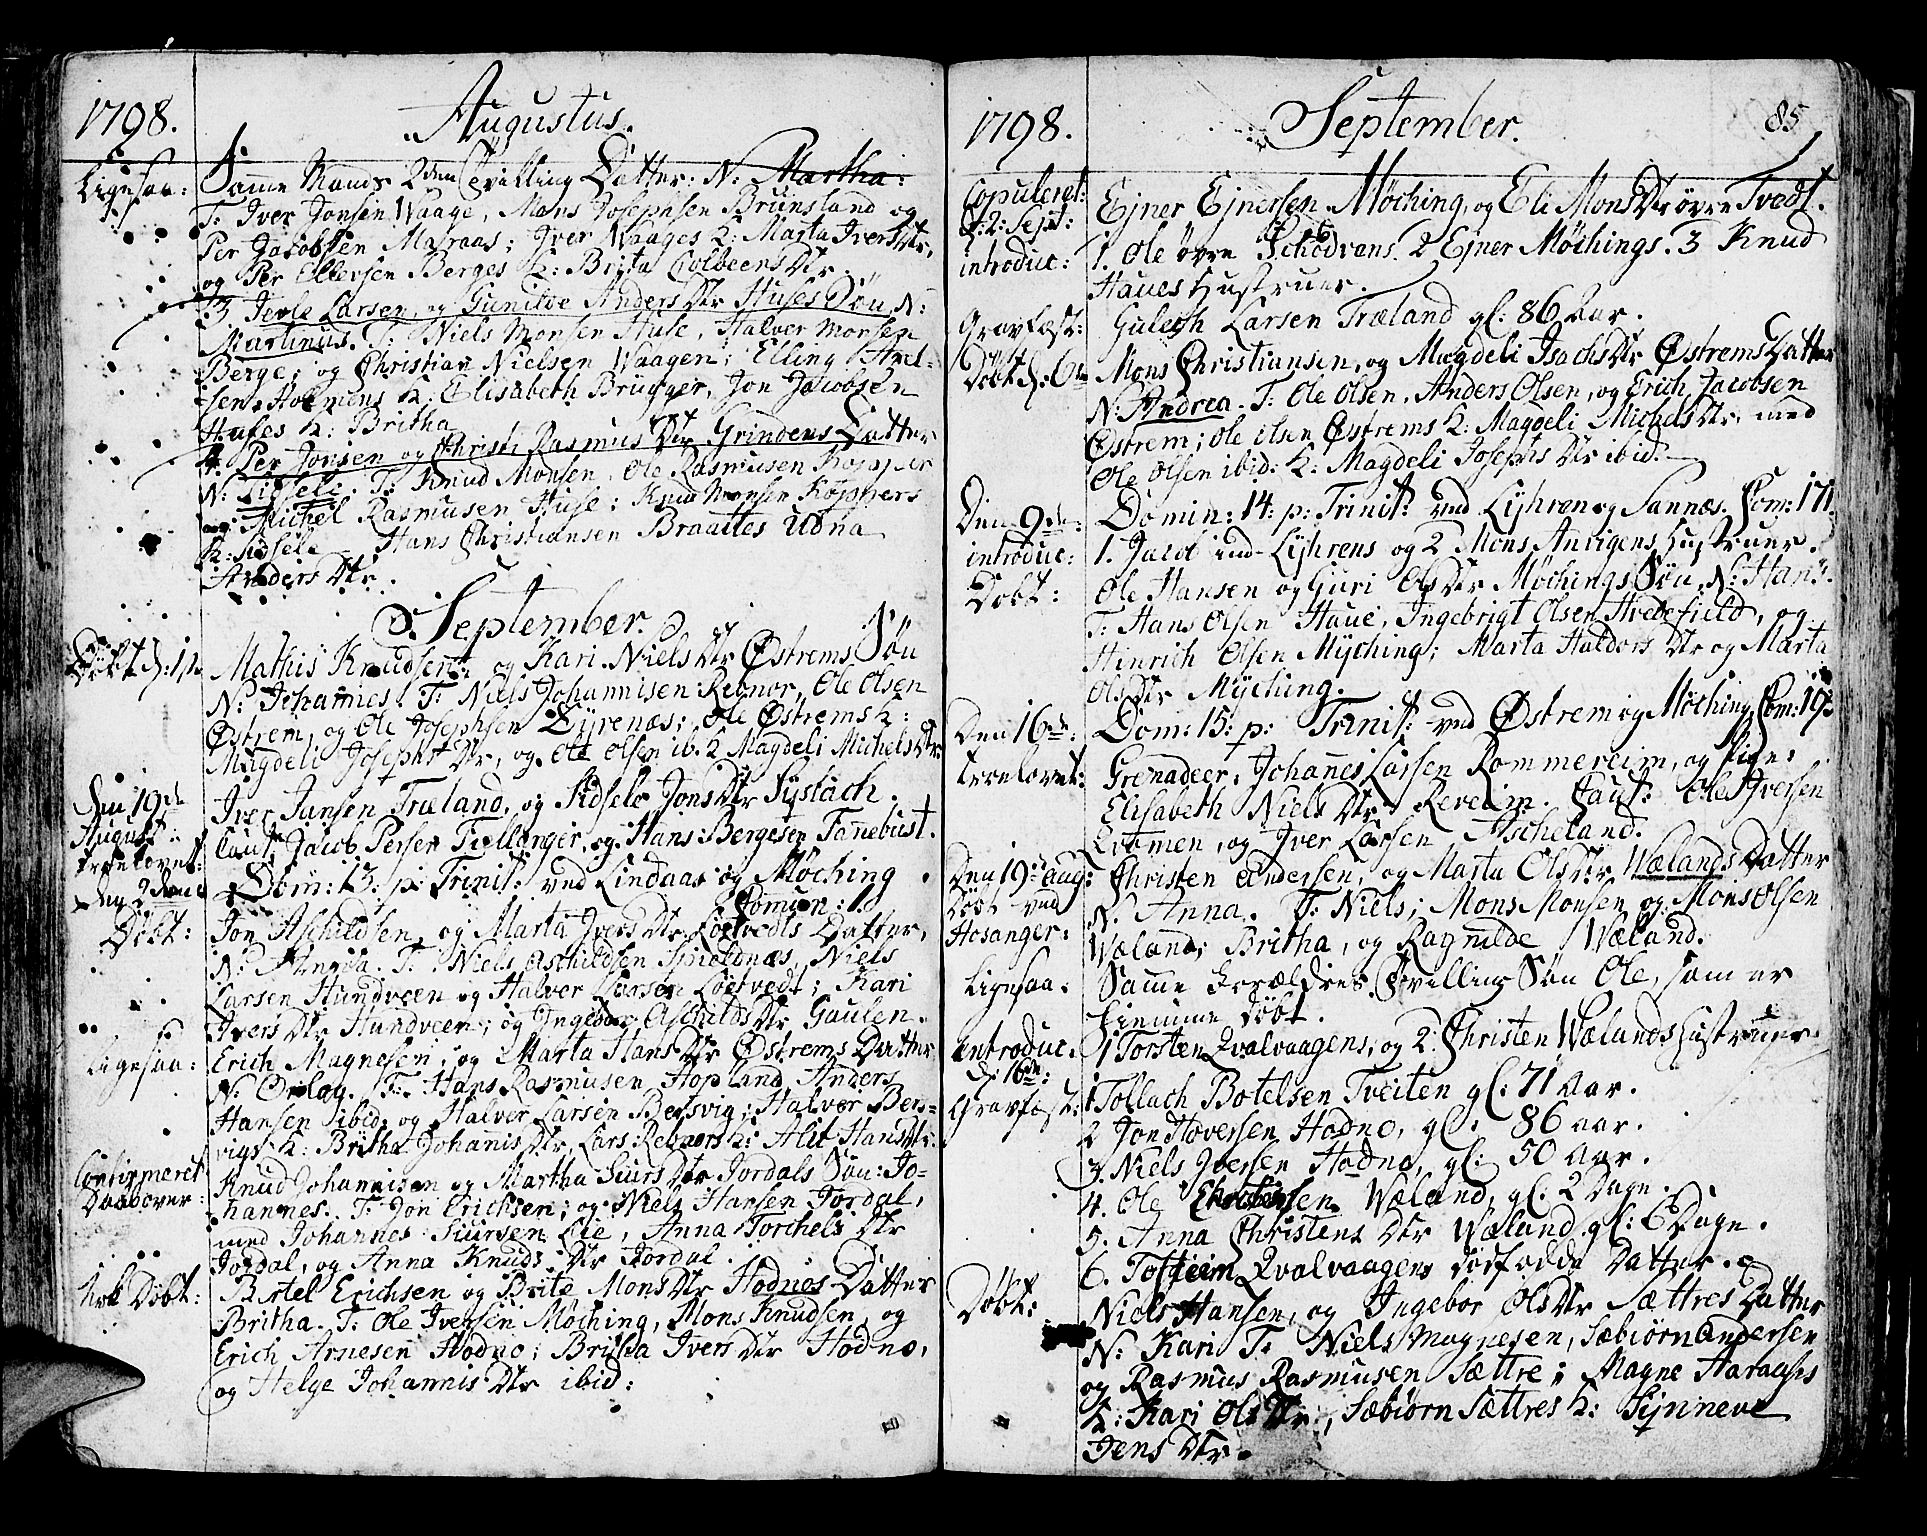 1798.
Augustus.
Ligesaa:
Samme Mands 2den Tvilling Datter: N: Martha:
T: Iver Jonsen Waage, Mons Josephsen Brunsland og
Per Jacobsen Masraas; Iver Waages K: Marta Ivers Dtr,
og Per Ellersen Berges K: Brita Colbeens Dtr.
3 Jerle Larsen, og Gunilde Anders Dtr Huses Søn N:
Martinus. T: Niels Monsen Huse, Halver Monsen
Berge, og Christian Nielsen Waagen; Elling Axel-
sen Holmens K: Elisabeth Brugger, Jon Jacobsen
Huses K: Britha
4. Per Jonsen og Christi Rasmus Dtr Grindens Datter
N: Sidseli. T: Knud Monsen, Ole Rasmusen Kopper
og Michel Rasmusen Huse; Knud Monsen Koppers
K: Sidsele Hans Christiansen Braattes Udna
Anders Dtr.
September.
Døbt d: 1te
Mathis Knudsen, og Kari Niels Dtr Østrems Søn
N: Johannes. T: Niels Johannisen Repnor, Ole Olsen
Østrem, og Ole Josephsen Dyrenæs; Ole Østrems K:
Magdeli Josephs Dtr, og Ole Olsen ib. K Magdeli Michels Dtr
Den 19de
August
trolovet:
Iver Jansen Træland, og Sidsele Jons Dtr Systach.
Caut: Jacob Persen Fiellanger, og Hans Bergesen Tannebust.
Den 2den
Dom: 13. p: Trinit: ved Lindaas og Møching
Comun: 1
Døbt:
Jon Aschildsen, og Marta Ivers Dtr Loetvedts Datter,
N: Annda. T: Niels Aschildsen Spieldnæs, Niels
Larsen Hundveen og Halver Larsen Loetvedt; Kari
Ivers Dtr Hundveen; og Ingebor Aschilds Dtr Gaulen.
Ligesaa:
Erich Magnesen, og Marta Hans Dtr Østrems Datter
N: Orlog. T: Hans Rasmusen Hopland, Anders
Hansen ibid, og Halver Larsen Bersvig; Halver Bers-
vigs K: Britha Johanis Dtr, Lars Repnors K: Alet Hans Dtr.
Confirmeret
Daaben over:
Knud Johannisen og Martha Siurs Dtr Jordals Søn: Jo-
hannes. T: Jon Erichsen; og Niels Hansen Jordal,
med Johannes Siursen Lie, Anna Torchels Dtr
Jordal, og Anna Knuds Dtr Jordal.
Ark Døbt:
Bertel Erichsen og Brite Mons Dtr Hodnes Datter
Britha. T: Ole Iversen Møching, Mons Knudsen, og
Erich Arnesen Hodne; Britha Ivers Dtr Hodne,
og Helge Johannis Dtr ibid:
1798.
September.
85
Copuleret:
d: 2: Sept:
Ejner Ejnersen Møching, og Eli Mons Dtr øvre Tvedt.
introduc:
1. Ole øvre Schodvens. 2 Ejner Møchings. 3 Knud
Haues Hustruer.
Gravfæst:
Gulech Larsen Træland gl: 86 Aar.
Døbt d: 6te
Mons Christiansen, og Magdeli Isachs Dtr Østrems Datter
N: Andrea. T: Ole Olsen, Anders Olsen, og Erich Jacobsen
Østrem; Ole Olsen Østrems K: Magdeli Michels Dtr, med
Ole Olsen ibid: K: Magdeli Josephs Dtr ibid.
Den 9de:
Domin: 14: p: Trinit: ved Lyhren og Sannæs. Com: 171
introduc:
1. Jacob ind-Lyhrens og 2 Mons Anvigens Hustruer.
Døbt:
Ole Hansen og Guri Ols Dtr Møchings Søn, N: Hans.
T: Hans Olsen Haue, Ingebrigt Olsen Hvedefield, og
Hinrich Olsen Myching; Marta Haldors Dtr og Marta
Ols Dtr Myching.
Den 16de:
Dom: 15: p: Trinit: ved Østrem og Møching Com: 193
trolovet:
Grenadeer: Johannes Larsen Rommereim, og Pige:
Elisabeth Niels Dtr Revelim. Caut: Ole Iversen
Evomen, og Iver Larsen Ascheland.
Den 19de Aug:
Døbt ved
Hosanger:
Christen Andersen, og Marta Ols Dtr Wælands Datter
N: Anna. T: Niels, Mons Monsen og Mons Olsen
Wæland; Britha, og Ragnilde Wæland.
Ligesaa.
Samme Forældres Tvilling Søn Ole, som er
hiemme døbt.
introduc.
d: 16de:
1 Torsten Qvalvaagens, og 2 Christen Wælands Hustruer.
Gravfæst:
1 Tollach Botelsen Tveiten gl: 71 Aar.
2 Jon Hoversen Hodne, gl: 86 aar.
3. Niels Iversen Hodne, gl: 50 Aar.
4. Ole Christensen Wæland, gl: 2 Dage.
5. Anna Christens Dtr Wæland gl: 6 Dage.
6. Qvalvaagens dødfødde Datter.
Døbt:
Niels Hansen, og Ingebor Ols Dtr Sættres Datter
N: Kari T: Niels Magnesen, Sæbiørn Andersen
og Rasmus Rasmusen Sættre; Magne Haraases
K: Kari Ols Dtr, Sæbiørn Sættres K: Synneve
Jens Dtr.